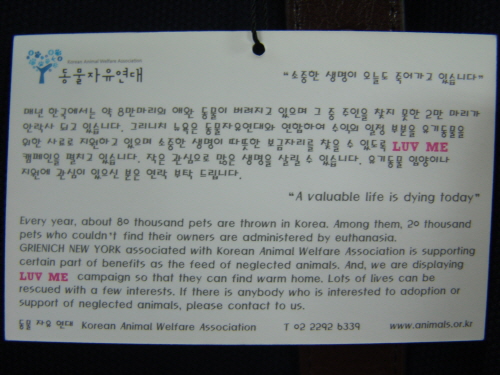 Korean Animal Welfare Association
동물자유연대
"소중한 생명이 오늘도 죽어가고 있습니다"
매년 한국에서는 약 8만마리의 애완 동물이 버려지고 있으며 그 중 주인을 찾지 못한 2만 마리가
안락사 되고 있습니다. 그리니치 뉴욕은 동물자유연대와 연합하여 수익의 일정 부분을 유기동물을
위한 사료로 지원하고 있으며 소중한 생명이 따뜻한 보금자리를 찾을 수 있도록 LUV ME
캠페인을 펼치고 있습니다. 작은 관심으로 많은 생명을 살릴 수 있습니다. 유기동물 입양이나
지원에 관심이 있으신 분은 연락 부탁 드립니다.
"A valuable life is dying today"
Every year, about 80 thousand pets are thrown in Korea. Among them, 20 thousand
pets who couldn't find their owners are administered by euthanasia.
GRIENICH NEW YORK associated with Korean Animal Welfare Association is supporting
certain part of benefits as the feed of neglected animals. And, we are displaying
LUV ME campaign so that they can find warm home. Lots of lives can be
rescued with a few interests. If there is anybody who is interested to adoption or
support of neglected animals, please contact to us.
동물 자유 연대 Korean Animal Welfare Association T 02 2292 6339 www.animals.or.kr